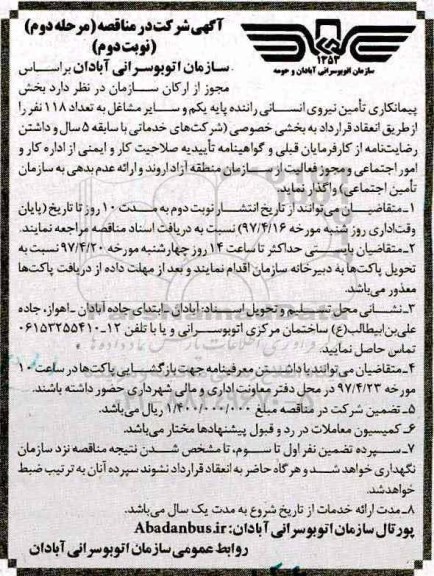 آگهی شرکت در مناقصه (مرحله دوم)
(نوبت دوم)
۱۳۵۳
سازمان اتوبوسرانی آبادان و حومه
سازمان اتوبوسرانی آبادان براساس
مجوز از ارکان سازمان در نظر دارد بخش
پیمانکاری تأمین نیروی انسانی راننده پایه یکم و سایر مشاغل به تعداد ۱۱۸ نفر را
از طریق انعقاد قرارداد به بخشی خصوصی (شرکت‌های خدماتی با سابقه ۵ سال و داشتن
رضایت‌نامه از کارفرمایان قبلی و گواهینامه تأییدیه صلاحیت کار و ایمنی از اداره کار و
امور اجتماعی و مجوز فعالیت از سازمان منطقه آزاد اروند و ارائه عدم بدهی به سازمان
تأمین اجتماعی) واگذار نماید.
۱ـ متقاضیان می‌توانند از تاریخ انتشار نوبت دوم به مدت ۱۰ روز تا تاریخ (پایان
وقت اداری روز شنبه مورخه ۹۷/۴/۱۶) نسبت به دریافت اسناد مناقصه مراجعه نمایند.
۲ـ متقاضیان بایستی حداکثر تا ساعت ۱۴ روز چهارشنبه مورخه ۹۷/۴/۲۰ نسبت به
تحویل پاکت‌ها به دبیرخانه سازمان اقدام نمایند و بعد از مهلت داده از دریافت پاکت‌ها
معذور می‌باشد.
۳ـ نشانی محل تسلیم و تحویل اسناد: آبادان ـ ابتدای جاده آبادان ـ اهواز، جاده
علی‌بن‌ابیطالب(ع) ساختمان مرکزی اتوبوسرانی و یا با تلفن ۱۲ـ۰۶۱۵۳۲۵۵۴۱۰
تماس حاصل نمایید.
۴ـ متقاضیان می‌توانند با داشتن معرفینامه جهت بازگشایی پاکت‌ها در ساعت ۱۰
مورخه ۹۷/۴/۲۳ در محل دفتر معاونت اداری و مالی شهرداری حضور داشته باشند.
۵ـ تضمین شرکت در مناقصه مبلغ ۱/۴۰۰/۰۰۰/۰۰۰ ریال می‌باشد.
۶ـ کمیسیون معاملات در رد و قبول پیشنهادها مختار می‌باشد.
۷ـ سپرده تضمین نفر اول تا سوم، تا مشخص شدن نتیجه مناقصه نزد سازمان
نگهداری خواهد شد و هر گاه حاضر به انعقاد قرارداد نشوند سپرده آنان به ترتیب ضبط
خواهد شد.
۸ـ مدت ارائه خدمات از تاریخ شروع به مدت یک سال می‌باشد.
پورتال سازمان اتوبوسرانی آبادان: Abadanbus.ir
روابط عمومی سازمان اتوبوسرانی آبادان